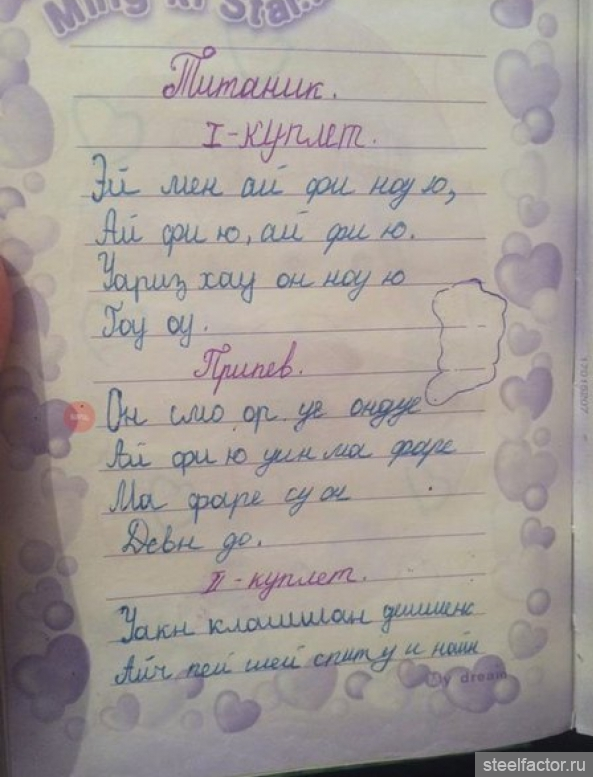 Титаник.
I-куплет.
Эй мен ай фи ноу ю,
Ай фи ю, ай фи ю.
Уариз хау он ноу ю
Гоу оу.
Припев.
Он смо ор уе ондуе
Ай фи ю уин ма фаре
Ма фаре су он
Девн до.
II-куплет.
Уакн клашшан
Айч пей шей спит у и найн
My dream
170 15207
steelfactor.ru